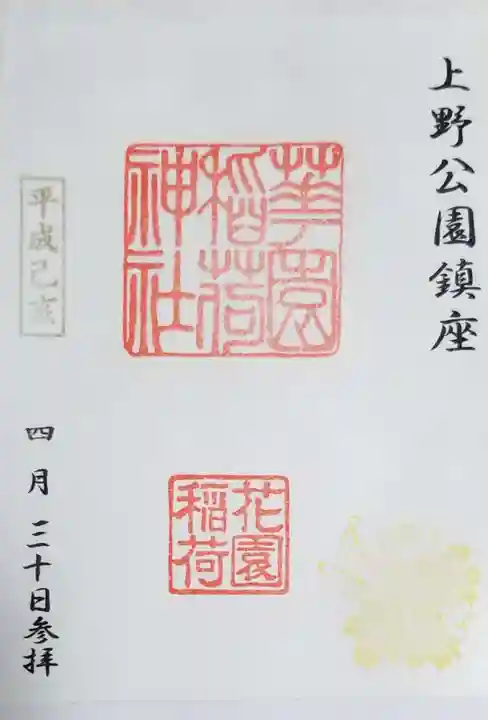 上野公園鎮座
華園
稲荷
神社
花園
稲荷
平成己亥
四月三十日参拝